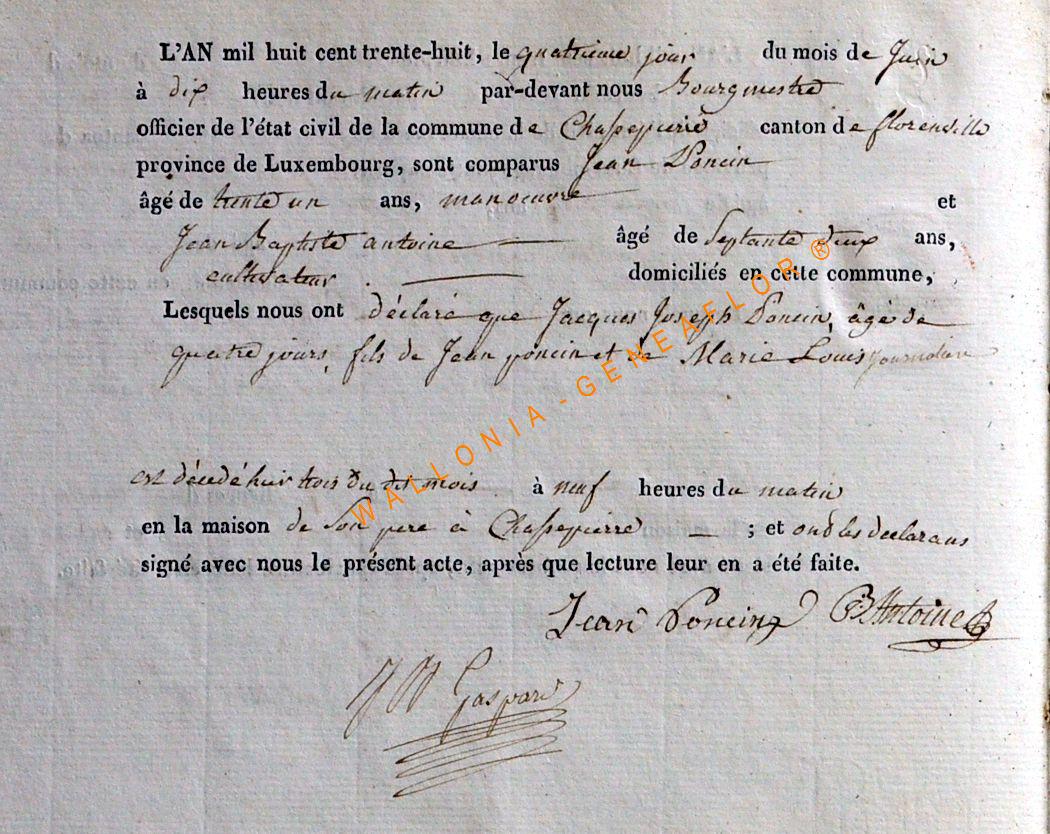 L'AN mil huit cent trente-huit, le quatrieme jour du mois de Juin
à dix heures du matin par-devant nous Bourgmestre
officier de l'état civil de la commune de Chassepierre canton de florenville
province de Luxembourg, sont comparus Jean Poncin
âgé de trente un ans, manoeuvre et
Jean Baptiste antoine âgé de Septante deux ans,
cultivateur. domiciliés en cette commune,
Lesquels nous ont déclaré que Jacques Joseph Poncin, âgé de
quatre jours, fils de Jean poncin et de Marie Louis
est décédé hier trois du dit mois à neuf heures du matin
en la maison de Son pere à Chassepierre ; et ont les declarans
signé avec nous le présent acte, après que lecture leur en a été faite.
Jean Poncin JB Antoine
Gaspard
WALLONIA-GENEAFLOR®